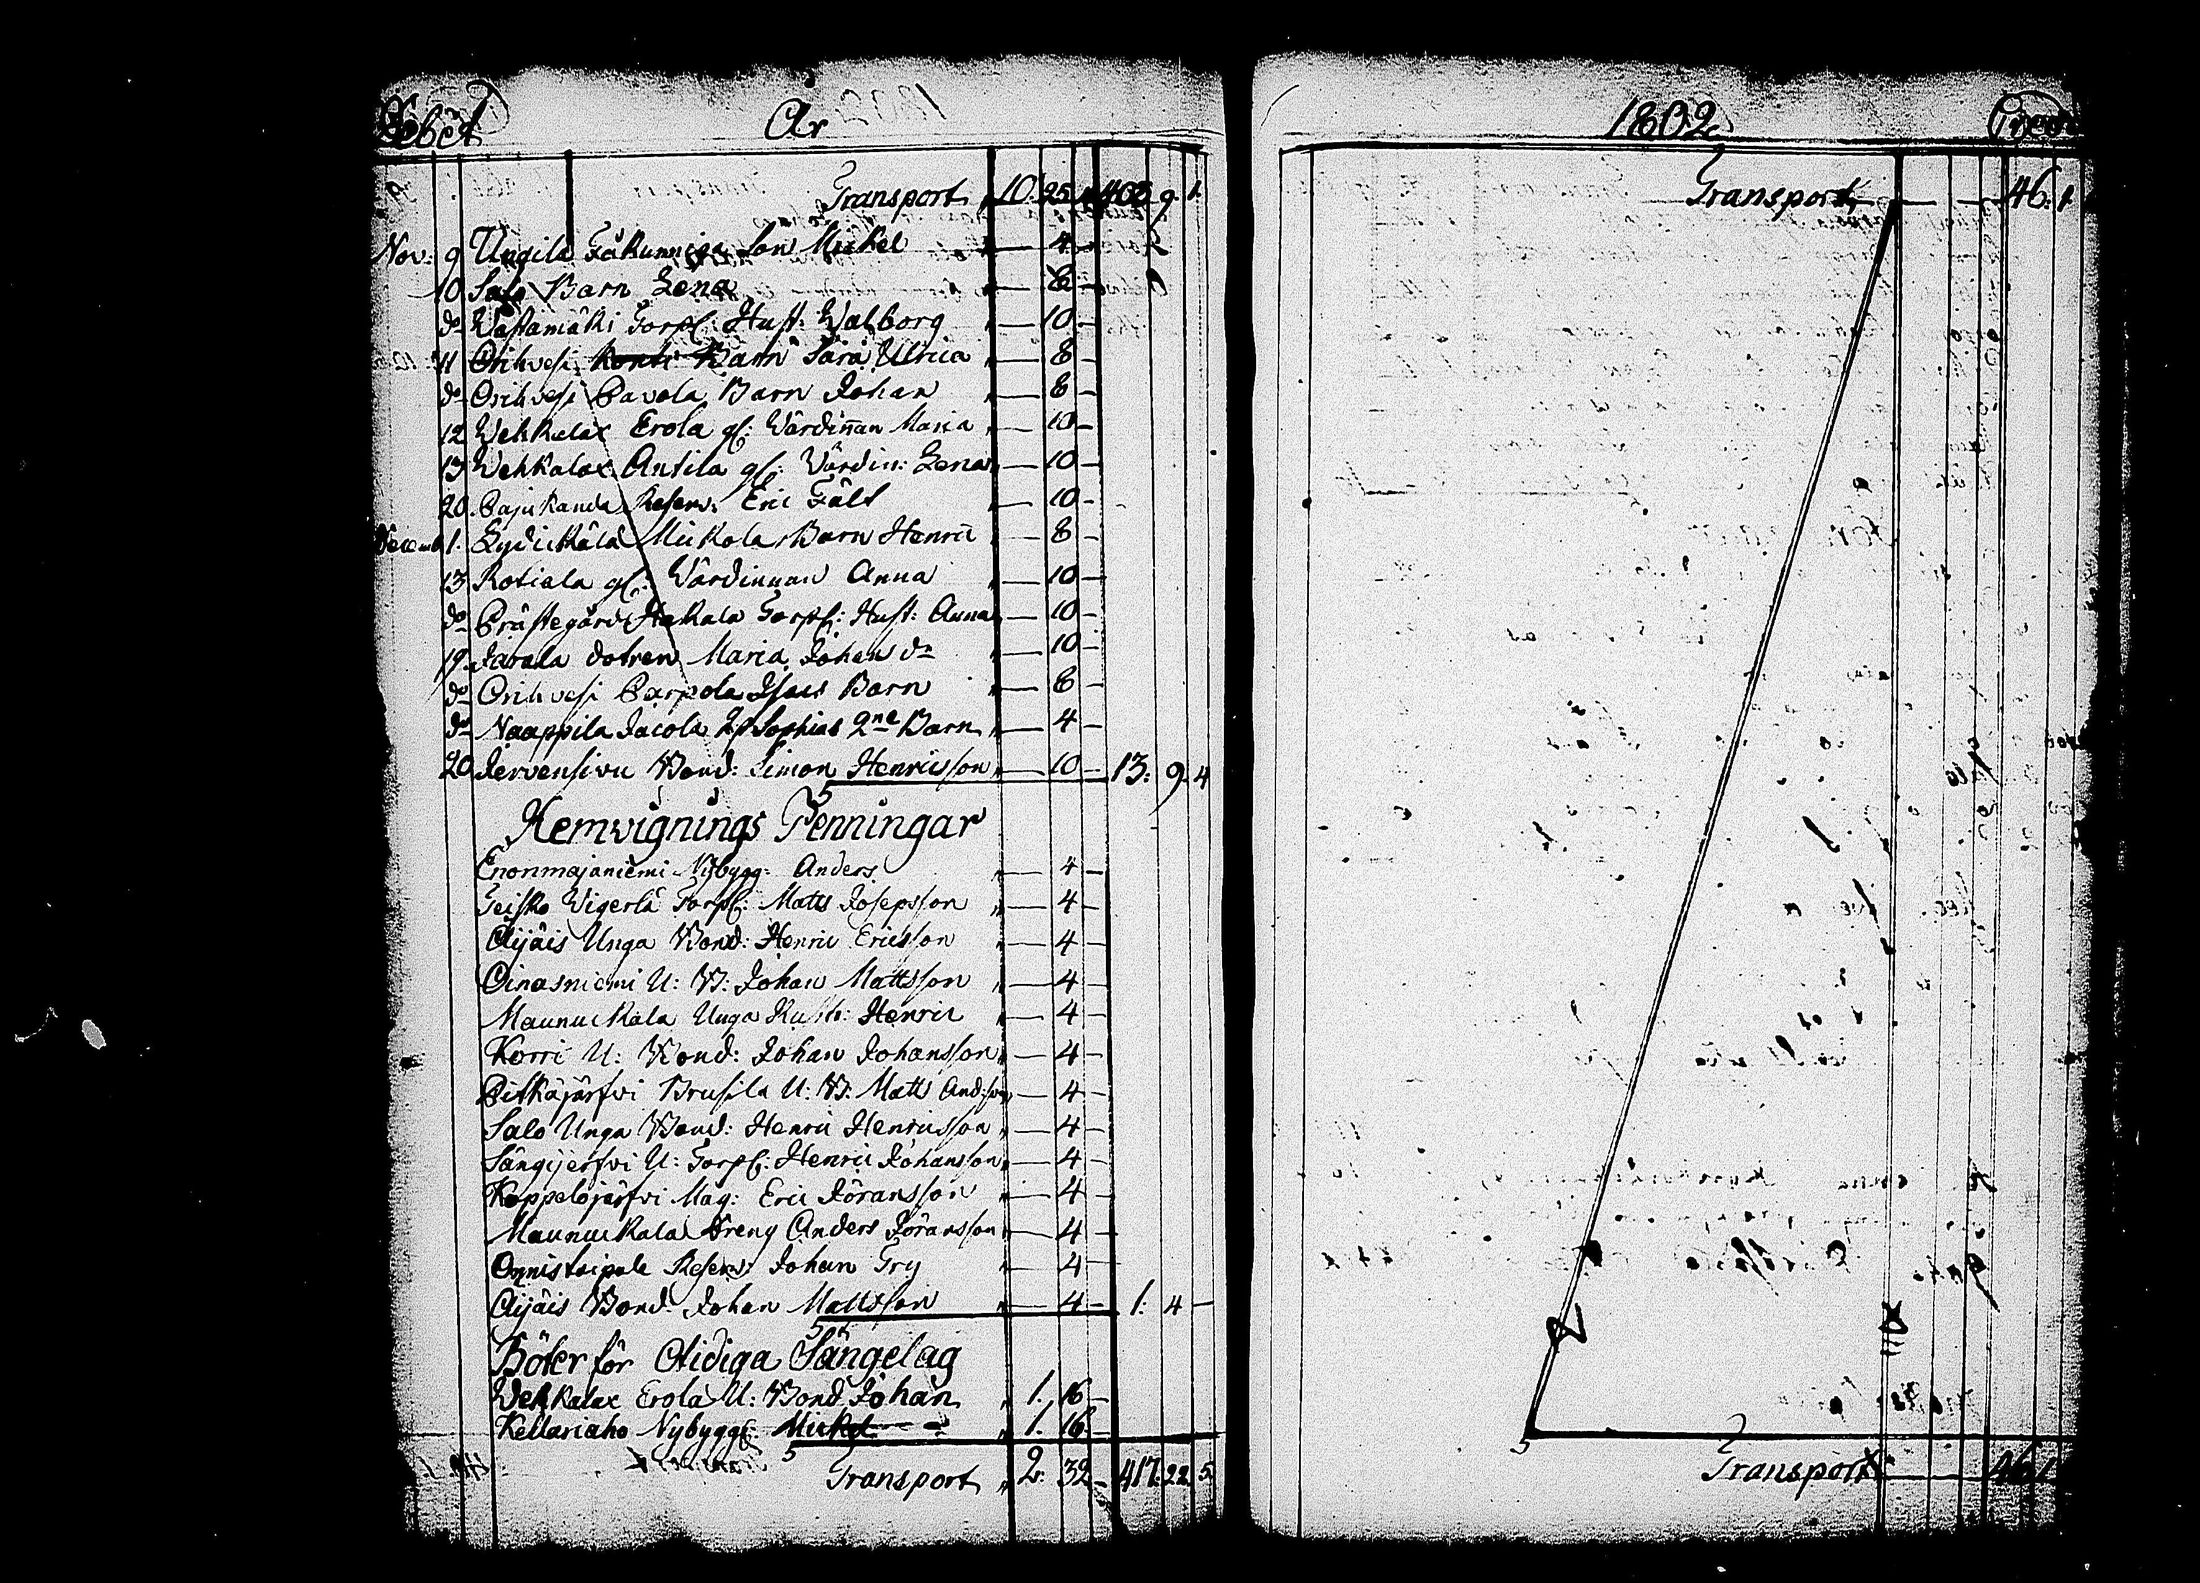 Debet År
Transport " 10. 25. 403 9. 1.
Nov: 9 Ungila son Mickel " — 4 —
10 Salo Barn Lena " — 8 —
do Wästamäki Torp: Hust: Walborg — 10 —
11 Orihvesi Barn Sara Ulrica " — 8 —
do Orihvesi Pavola Barn Johan " — 8 —
12 Wehkalax Erola gl: Wärdinnan Maria " — 10 —
13 Wehkalax Antila gl: Wärdin: Lena " — 10 —
20. Pajukanda Reserv: Eric Fält — 10 —
Decemb 1. Lydickälä Mickola Barn Henric " — 8 —
13 Rotiala gl: Wärdinnan Anna " — 10 —
do Prästegård Hakala Torp: Hust: Anna " — 10 —
19. Jarala dotren Maria Johan dr " — 10 —
do Orihvesi Parpola Isacs Barn " — 8 —
do Naappila Jacola Sophias 2ne Barn " — 4 —
20 Jervensivu Bond: Simon Henricsson " — 10 — 13: 9. 4
Hemvignings Penningar
Enonmajaniemi Nybygg: Anders " — 4 —
Teisko Wigerlä Torp: Matts Josepsson " — 4 —
Äijäis Unga Bond: Henric Ericsson " — 4 —
Oinasniemi U: B: Johan Mattsson " — 4 —
Maunuckala Unga Rusth: Henric " — 4 —
Korri U: Bond: Johan Johansson " — 4 —
Pitkäjärfvi Brusila U: B: Matts And:son " — 4 —
Salo Unga Bond: Henric Henricsson " — 4 —
Sängijerfvi U: Torp: Henric Johansson " — 4 —
Koppelojärfvi Måg: Eric Jöransson " — 4 —
Maunuckala Dreng Anders Jöransson " — 4 —
Onnistaipale Reserv: Johan Try " — 4 —
Äijäis Bond: Johan Mattsson " — 4 — 1. 4 —
Böter för Otidiga Sängelag
Wehkalax Erola U: Bond Johan " 1. 16 —
Kellariaho Nybygg: Mickel " 1. 16 —
Transport " 2. 32 — 417. 22. 5
1802 Credit
Transport — — — 46. 1
Transport — 46. 1